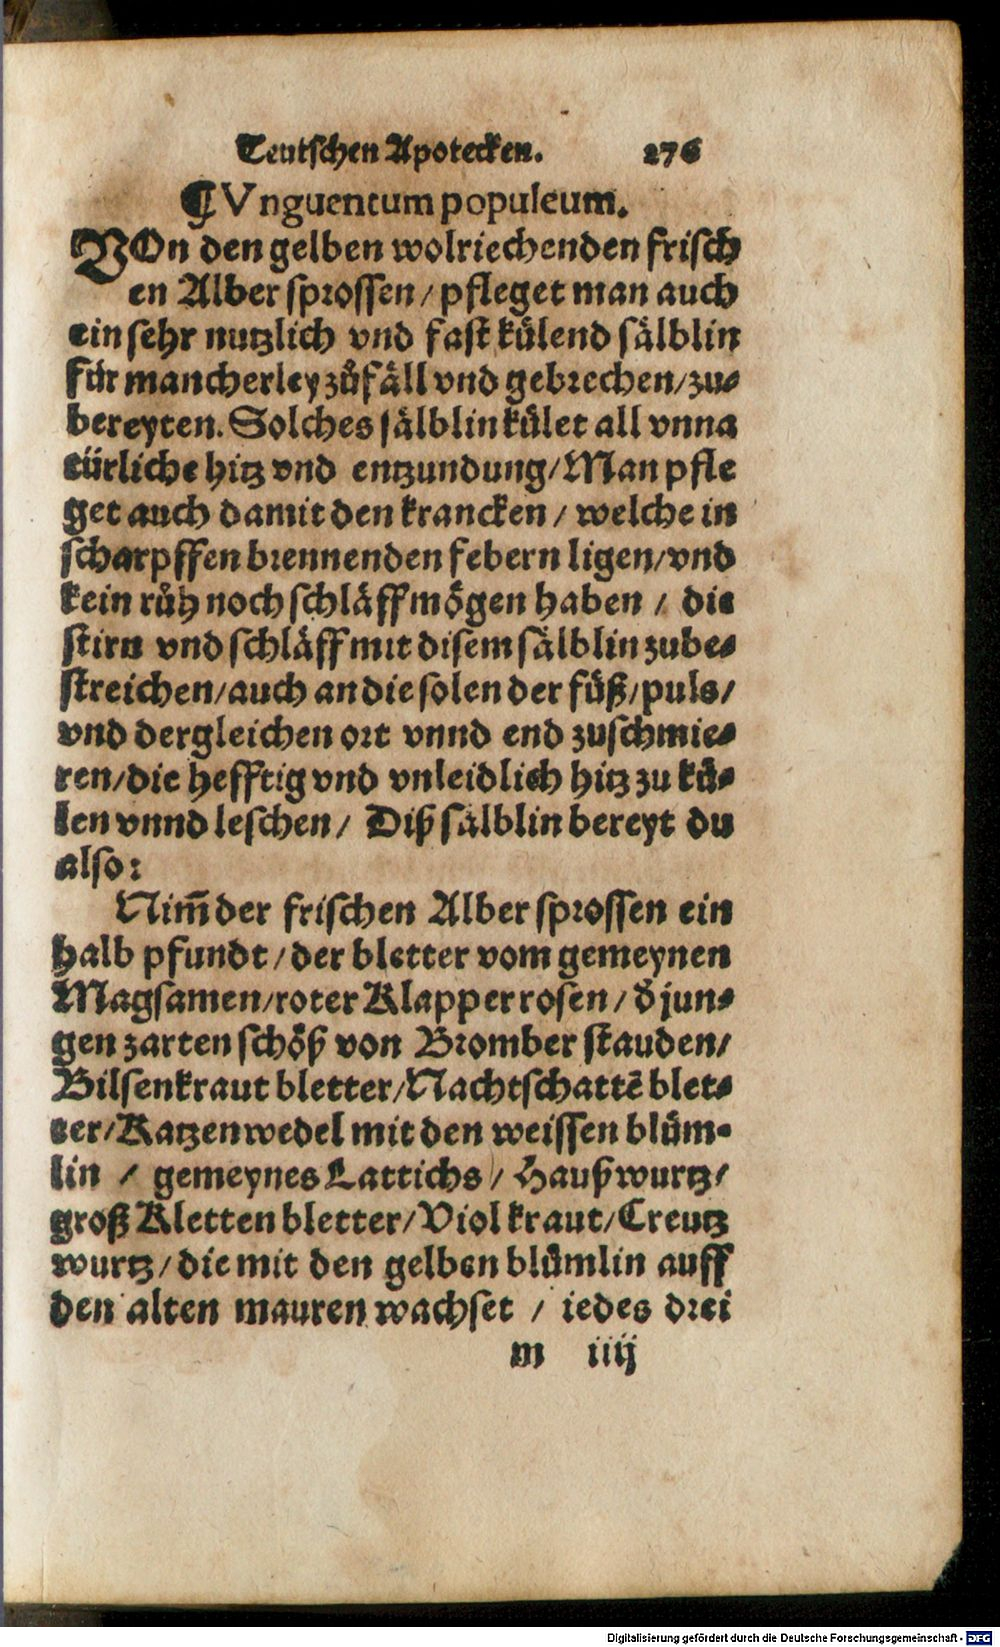 Teutschen Apotecken. 276
¶ Vnguentum populeum.
VOn den gelben wolriechenden frisch
en Alber sprossen / pfleget man auch
ein sehr nutzlich vnd fast kůlend sälblin
für mancherley zůfäll vnd gebrechen / zu⸗
bereyten. Solches sälblin kůlet all vnna
türliche hitz vnd entzundung / Man pfle
get auch damit den krancken / welche in
scharpffen brennenden febern ligen / vnd
kein růh noch schläff mögen haben / die
stirn vnd schläff mit disem sälblin zube⸗
streichen / auch an die solen der füß / puls /
vnd dergleichen ort vnnd end zuschmie⸗
ren / die hefftig vnd vnleidlich hitz zu ků⸗
len vnnd leschen / Diß sälblin bereyt du
also:
Nim̄ der frischen Alber sprossen ein
halb pfundt / der bletter vom gemeynen
Magsamen / roter Klapper rosen / d̕ jun⸗
gen zarten schöß von Bromber stauden /
Bilsenkraut bletter / Nachtschattē blet⸗
ter / Katzenwedel mit den weissen blům⸗
lin / gemeynes Lattichs / Haußwurtz /
groß Kletten bletter / Viol kraut / Creutz
wurtz / die mit den gelben blůmlin auff
den alten mauren wachset / iedes drei
m iiij
Digitalisierung gefördert durch die Deutsche Forschungsgemeinschaft - DFG